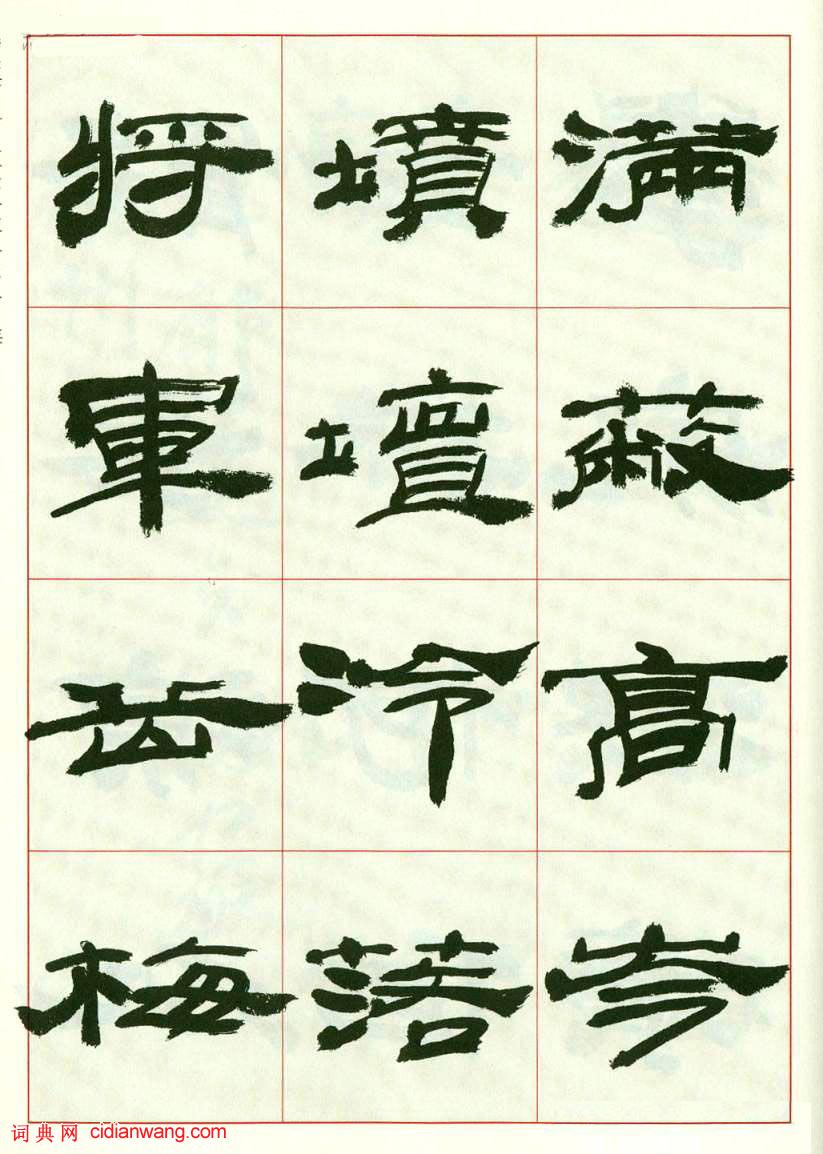 滿蔽高岑
墳壇冷落
將軍岳梅
词典网 cidianwang.com